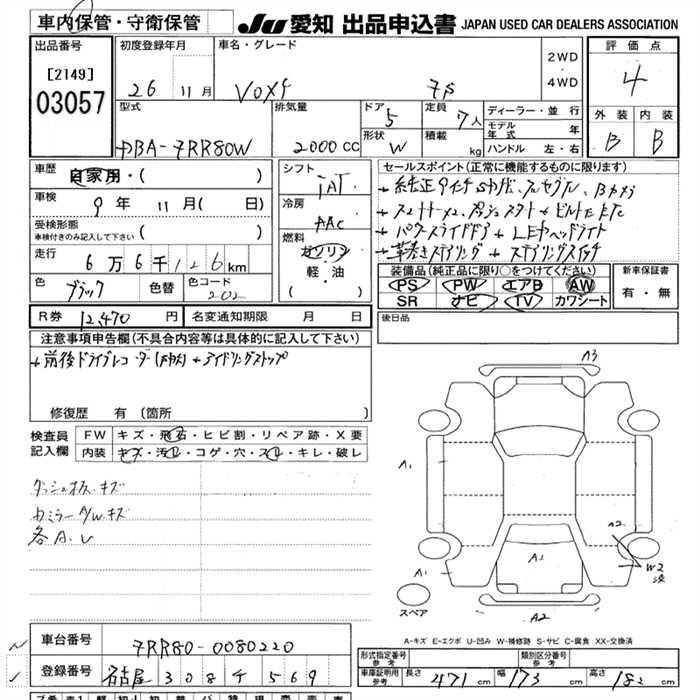 車内保管・守衛保管
JU 愛知 出品申込書 JAPAN USED CAR DEALERS ASSOCIATION
出品番号
[2149]
03057
初度登録年月
26 11月
車名・グレード
VOXY 7S
2WD
・
4WD
評価点
4
外装 内装
B B
型式
DBA-ZRR80W
排気量
2000 CC
ドア 5
形状 W
定員 7人
積載 kg
ディーラー・並行
モデル年式 年
ハンドル 左・右
車歴
自家用・( )
車検
9年 11月( 日)
受検形態
車検付きのみ記入して下さい( )
走行
6万6千126km
色
ブラック
色替
カラーNo.
202
シフト
IAT
冷房
AAC
燃料
ガソリン
軽・油
( )
セールスポイント(正常に機能するものに限ります)
+パワースライドドア +LEDヘッドライト
+革巻きステアリング + ステアリングスイッチ
装備品(純正品に限り○をつけてください)
PS PW エアB AW
SR ナビ TV カワシート
新車保証書
有・無
R券 12,470 円
名変通知期限 月 日
後日品
注意事項申告欄(不具合内容等は具体的に記入して下さい)
+アイドリングストップ
修復歴 有(箇所 )
検査員
記入欄
FW キズ・飛石・ヒビ割・リペア跡・X要
内装 キズ・汚れ・コゲ・穴・スレ・キレ・破レ
ダッシュオス、キズ
カミラーA/Wキズ
各A、U
A3
A1
A2
A1
A1
W2
A2
スペア
A-キズ E-エクボ U-凹み W-補修跡 S-サビ C-腐食 XX-交換済
車台番号
ZRR80-0080220
登録番号
名古屋 308 チ 569
形式指定番号
参考
類別区分番号
参考
車庫証明用
参考
長さ 471cm
幅 173cm
高さ 182cm